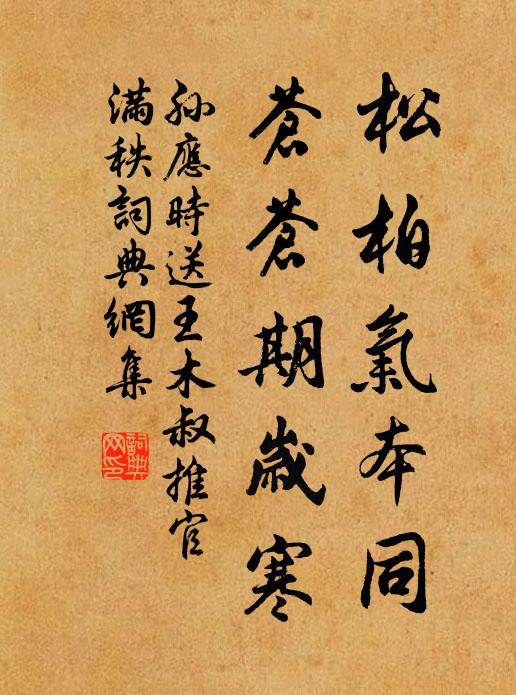 松柏氣本同
蒼蒼期歲寒
孫應時送王木叔推官
滿秩詞典網集
詞典
网印